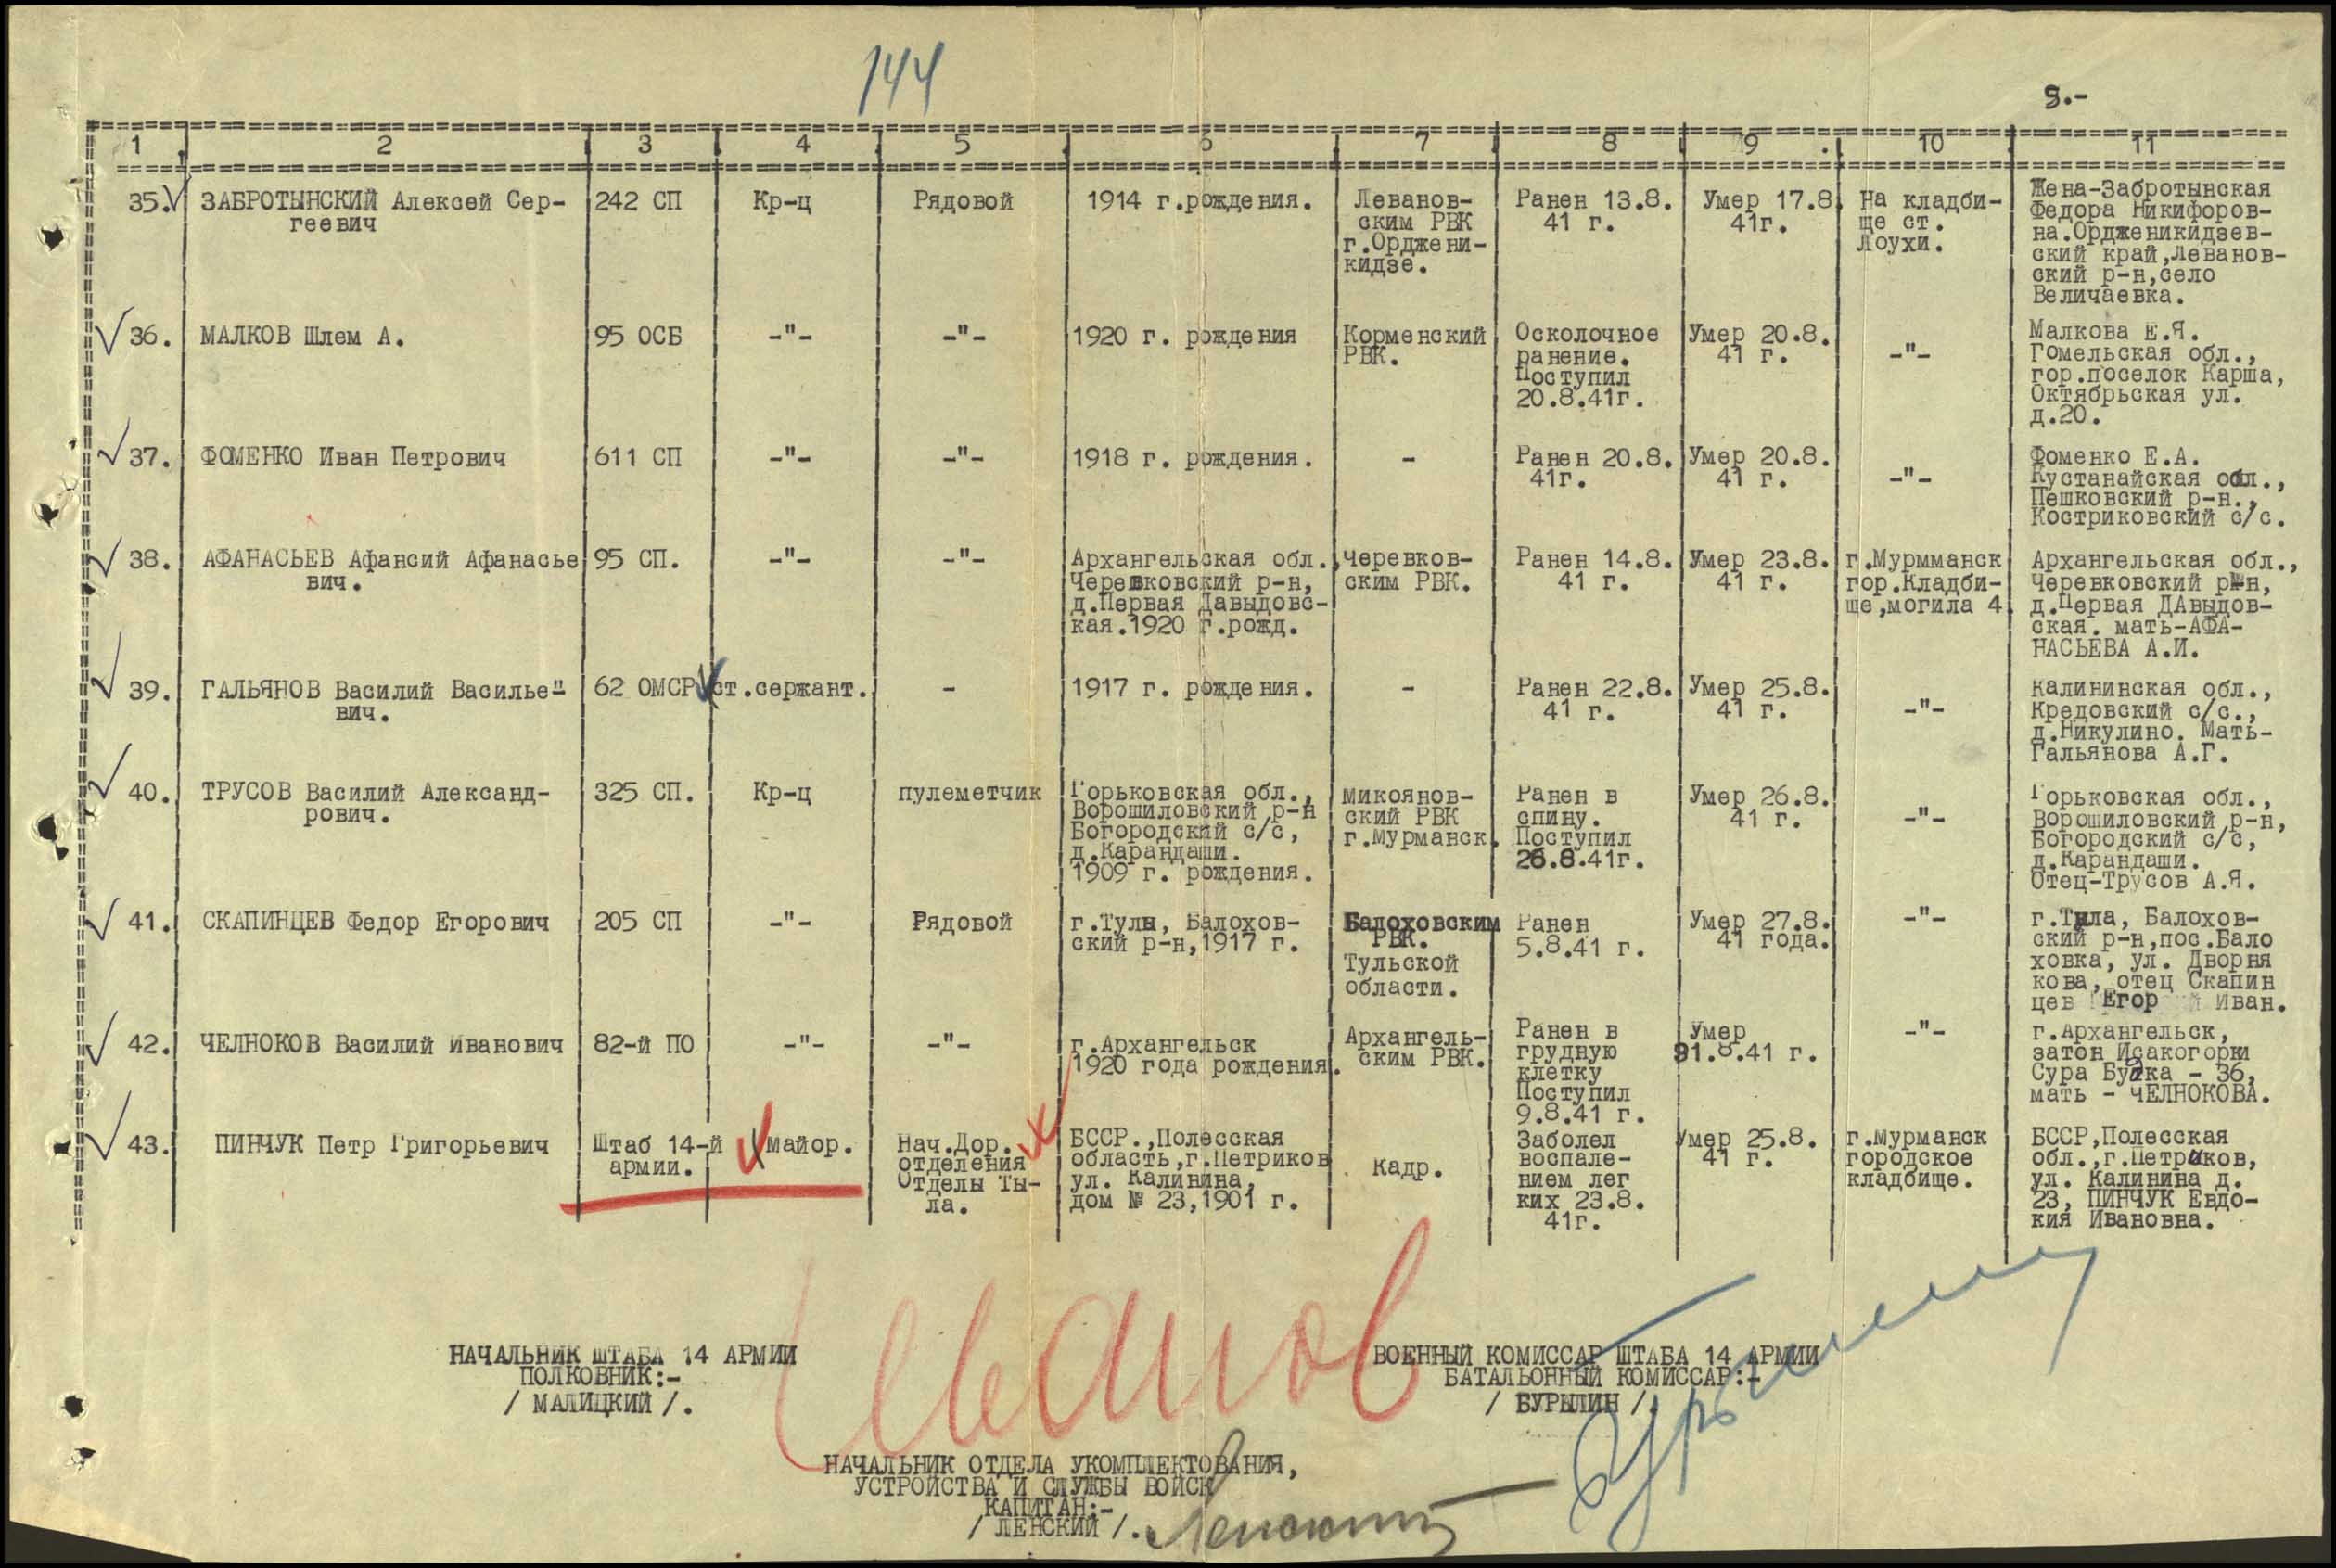 144
1 2 3 4 5 6 7 8 9 10 11
35. ЗАБРОТЫНСКИЙ Алексей Сер-
геевич
242 СП
Кр-ц
Рядовой
1914 г.рождения.
Леванов-
ским РВК
г.Орджени-
кидзе.
Ранен 13.8.
41 г.
Умер 17.8.
41г.
На кладби-
ще ст.
Лоухи.
Жена-Забротынская
Федора Никифоров-
на.Ордженикидзев-
ский край,Леванов-
ский р-н,село
Величаевка.
36. МАЛКОВ Шлем А.
95 ОСБ
-"-
-"-
1920 г. рождения
Корменский
РВК.
Осколочное
ранение.
Поступил
20.8.41г.
Умер 20.8.
41 г.
-"-
Малкова Е.Я.
Гомельская обл.,
гор.поселок Карша,
Октябрьская ул.
д.20.
37. ФОМЕНКО Иван Петрович
611 СП
-"-
-"-
1918 г. рождения.
-
Ранен 20.8.
41г.
Умер 20.8.
41 г.
-"-
Фоменко Е.А.
Кустанайская обл.,
Пешковский р-н.,
Костриковский с/с.
38. АФАНАСЬЕВ Афансий Афанасье
вич.
95 СП.
-"-
-"-
Архангельская обл.,
Черевковский р-н,
д.Первая Давыдовс-
кая.1920 г.рожд.
Черевков-
ским РВК.
Ранен 14.8.
41 г.
Умер 23.8.
41 г.
г.Мурмманск
гор.Кладби-
ще,могила 4.
Архангельская обл.,
Черевковский р-н,
д.Первая ДАвыдов-
ская. мать-АФА-
НАСЬЕВА А.И.
39. ГАЛЬЯНОВ Василий Василье-
вич.
62 ОМСР
ст.сержант.
-
1917 г. рождения.
-
Ранен 22.8.
41 г.
Умер 25.8.
41 г.
-"-
Калининская обл.,
Кредовский с/с.,
д.Никулино. Мать-
Гальянова А.Г.
40. ТРУСОВ Василий Александ-
рович.
325 СП.
Кр-ц
пулеметчик
Горьковская обл.,
Ворошиловский р-н
Богородский с/с,
д.Карандаши.
1909 г. рождения.
Микоянов-
ский РВК
г.Мурманск.
Ранен в
спину.
Поступил
26.8.41г.
Умер 26.8.
41 г.
-"-
Горьковская обл.,
Ворошиловский р-н,
Богородский с/с,
д.Карандаши.
Отец-Трусов А.Я.
41. СКАПИНЦЕВ Федор Егорович
205 СП
-"-
Рядовой
г.Тулы, Балохов-
ский р-н,1917 г.
Балоховским
РВК.
Тульской
области.
Ранен
5.8.41 г.
Умер 27.8.
41 года.
-"-
г.Тула, Балохов-
ский р-н,пос.Бало
ховка, ул. Дворня
кова, отец Скапин
цев Егор Иван.
42. ЧЕЛНОКОВ Василий Иванович
82-й ПО
-"-
-"-
г.Архангельск
1920 года рождения.
Архангель-
ским РВК.
Ранен в
грудную
клетку
Поступил
9.8.41 г.
Умер
31.8.41 г.
-"-
г.Архангельск,
затон Исакогорки
Сура Будка - 36,
мать - ЧЕЛНОКОВА.
43. ПИНЧУК Петр Григорьевич
Штаб 14-й
армии.
майор.
Нач.Дор.
отделения
Отделы Ты-
ла.
БССР.,Полесская
область,г.Петриков
ул. Калинина,
дом № 23,1901 г.
Кадр.
Заболел
воспале-
нием лег
ких 23.8.
41г.
Умер 25.8.
41 г.
г.Мурманск
городское
кладбище.
БССР,Полесская
обл.,г.Петриков,
ул. Калинина д.
23, ПИНЧУК Евдо-
кия Ивановна.
НАЧАЛЬНИК ШТАБА 14 АРМИИ
ПОЛКОВНИК:-
/ МАЛИЦКИЙ /.
ВОЕННЫЙ КОМИССАР ШТАБА 14 АРМИИ
БАТАЛЬОННЫЙ КОМИССАР:-
/ БУРЫЛИН /.
НАЧАЛЬНИК ОТДЕЛА УКОМПЛЕКТОВАНИЯ,
УСТРОЙСТВА И СЛУЖБЫ ВОЙСК
КАПИТАН:-
/ ЛЕНСКИЙ /.